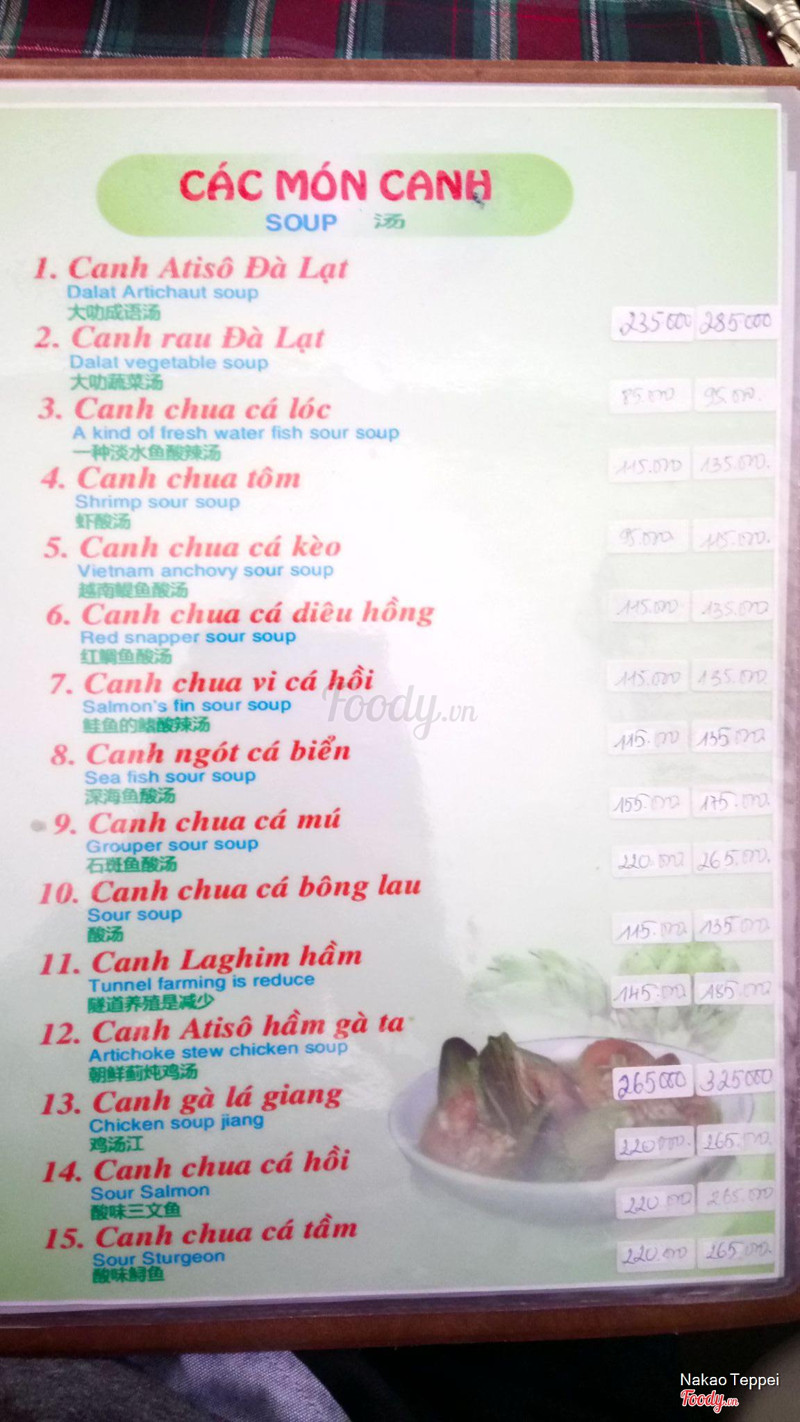 CÁC MÓN CANH
SOUP 汤
1. Canh Atisô Đà Lạt
Dalat Artichaut soup
大叻成语汤
235000 285000
2. Canh rau Đà Lạt
Dalat vegetable soup
大叻蔬菜汤
85.000 95.000.
3. Canh chua cá lóc
A kind of fresh water fish sour soup
一种淡水鱼酸辣汤
115.000 135.000.
4. Canh chua tôm
Shrimp sour soup
虾酸汤
95.000 115.000.
5. Canh chua cá kèo
Vietnam anchovy sour soup
越南鳀鱼酸汤
115.000 135.000
6. Canh chua cá diêu hồng
Red snapper sour soup
红鲷鱼酸汤
115.000 135.000.
7. Canh chua vi cá hồi
Salmon's fin sour soup
鲑鱼的鳍酸辣汤
115.000 135.000
8. Canh ngót cá biển
Sea fish sour soup
深海鱼酸汤
155.000 175.000.
9. Canh chua cá mú
Grouper sour soup
石斑鱼酸汤
220.000 265.000.
10. Canh chua cá bông lau
Sour soup
酸汤
115.000 135.000
11. Canh Laghim hầm
Tunnel farming is reduce
隧道养殖是减少
145.000 185.000
12. Canh Atisô hầm gà ta
Artichoke stew chicken soup
朝鲜蓟炖鸡汤
265000 325000
13. Canh gà lá giang
Chicken soup jiang
鸡汤江
220.000. 265.000.
14. Canh chua cá hồi
Sour Salmon
酸味三文鱼
220.000 265.000
15. Canh chua cá tầm
Sour Sturgeon
酸味鲟鱼
220.000 265.000.
Foody.vn
Nakao Teppei
Foody.vn